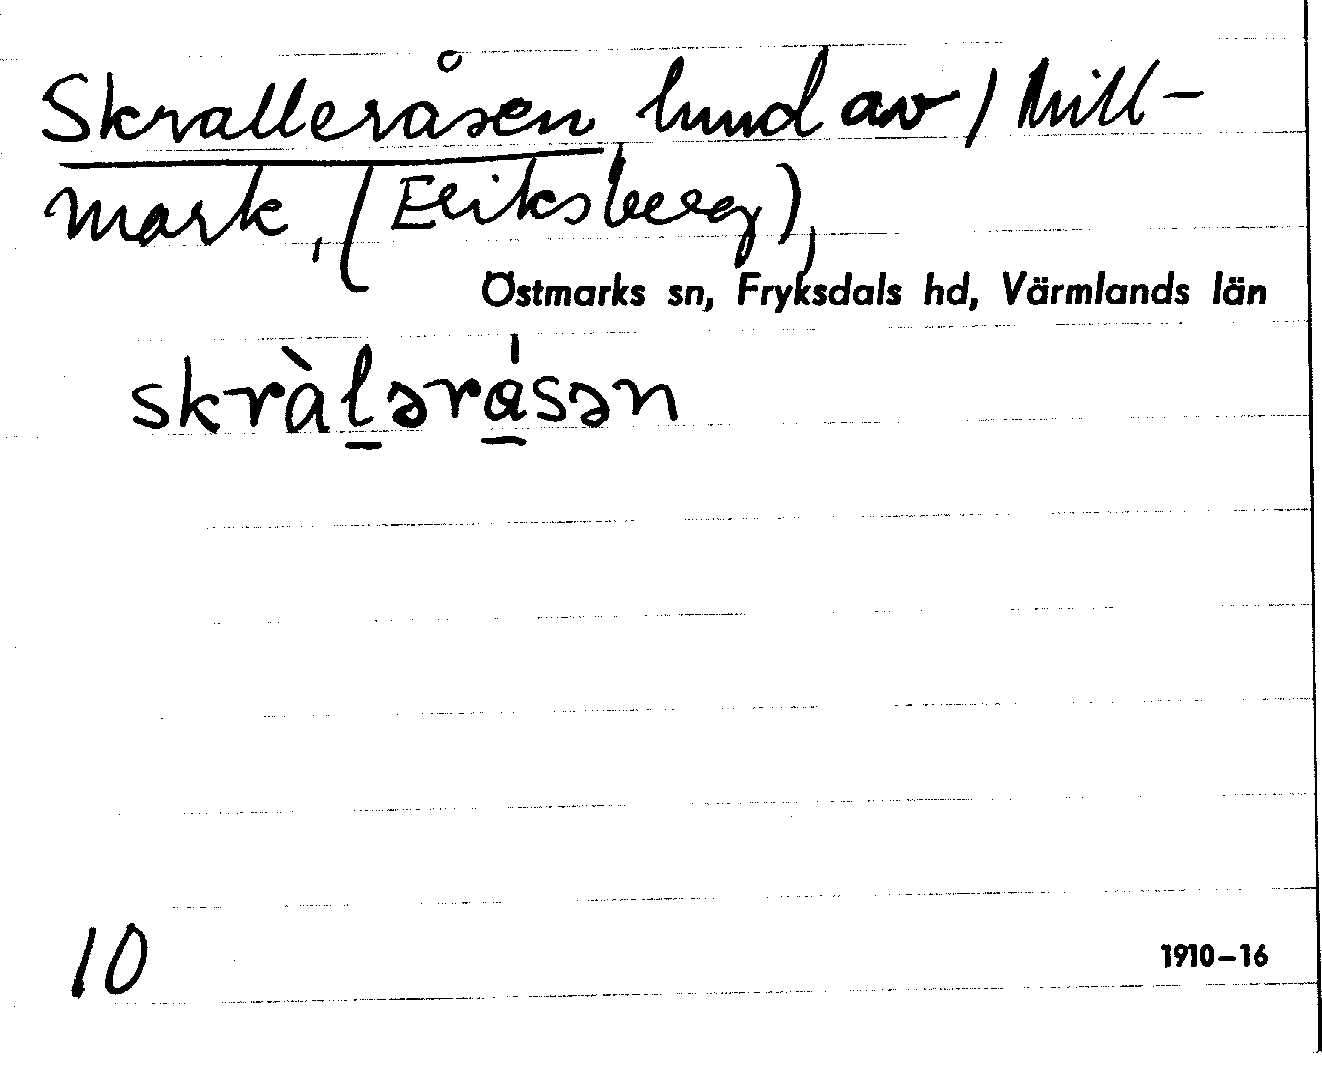 Skralleråsen hund av / Mill-
mark, (Eriksberg),
Östmarks sn, Fryksdals hd, Värmlands län
skràlərásən
10
1910–16